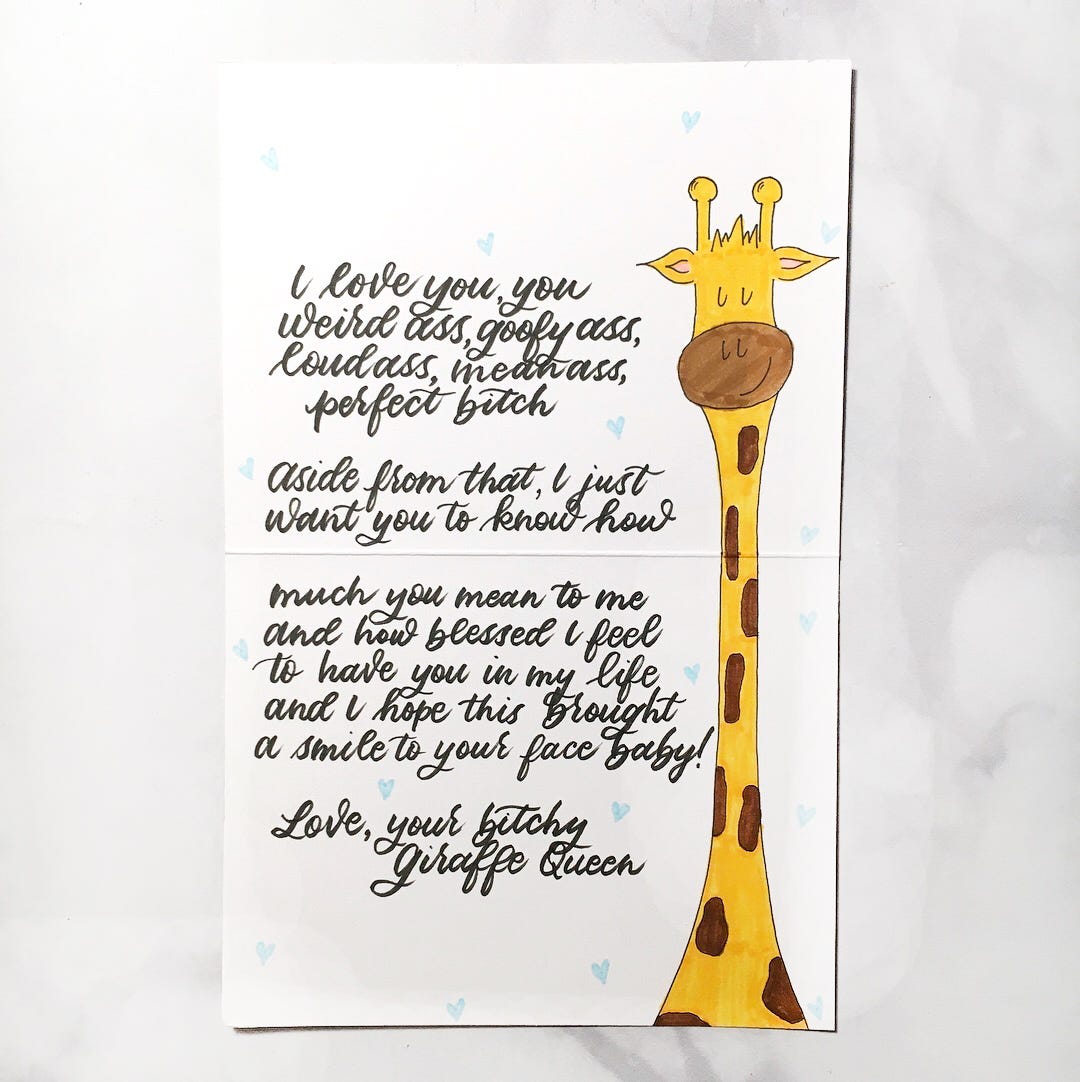 I love you, you
weird ass, goofy ass,
loud ass, mean ass,
perfect bitch
aside from that, I just
want you to know how
much you mean to me
and how blessed I feel
to have you in my life
and I hope this brought
a smile to your face baby!
Love, your bitchy
Giraffe Queen